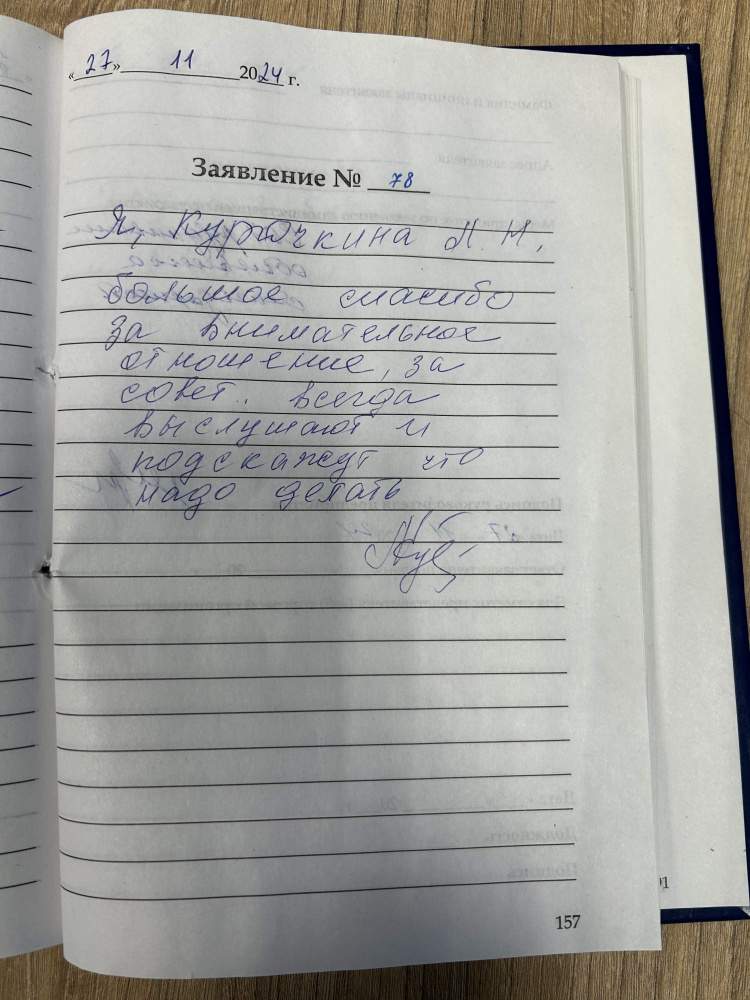 «27» 11 2024 г.
Заявление № 78
Я, Курочкина Л. Н.
большое спасибо
за внимательное
отношение, за
совет. всегда
выслушают и
подскажут что
надо делать
157
91